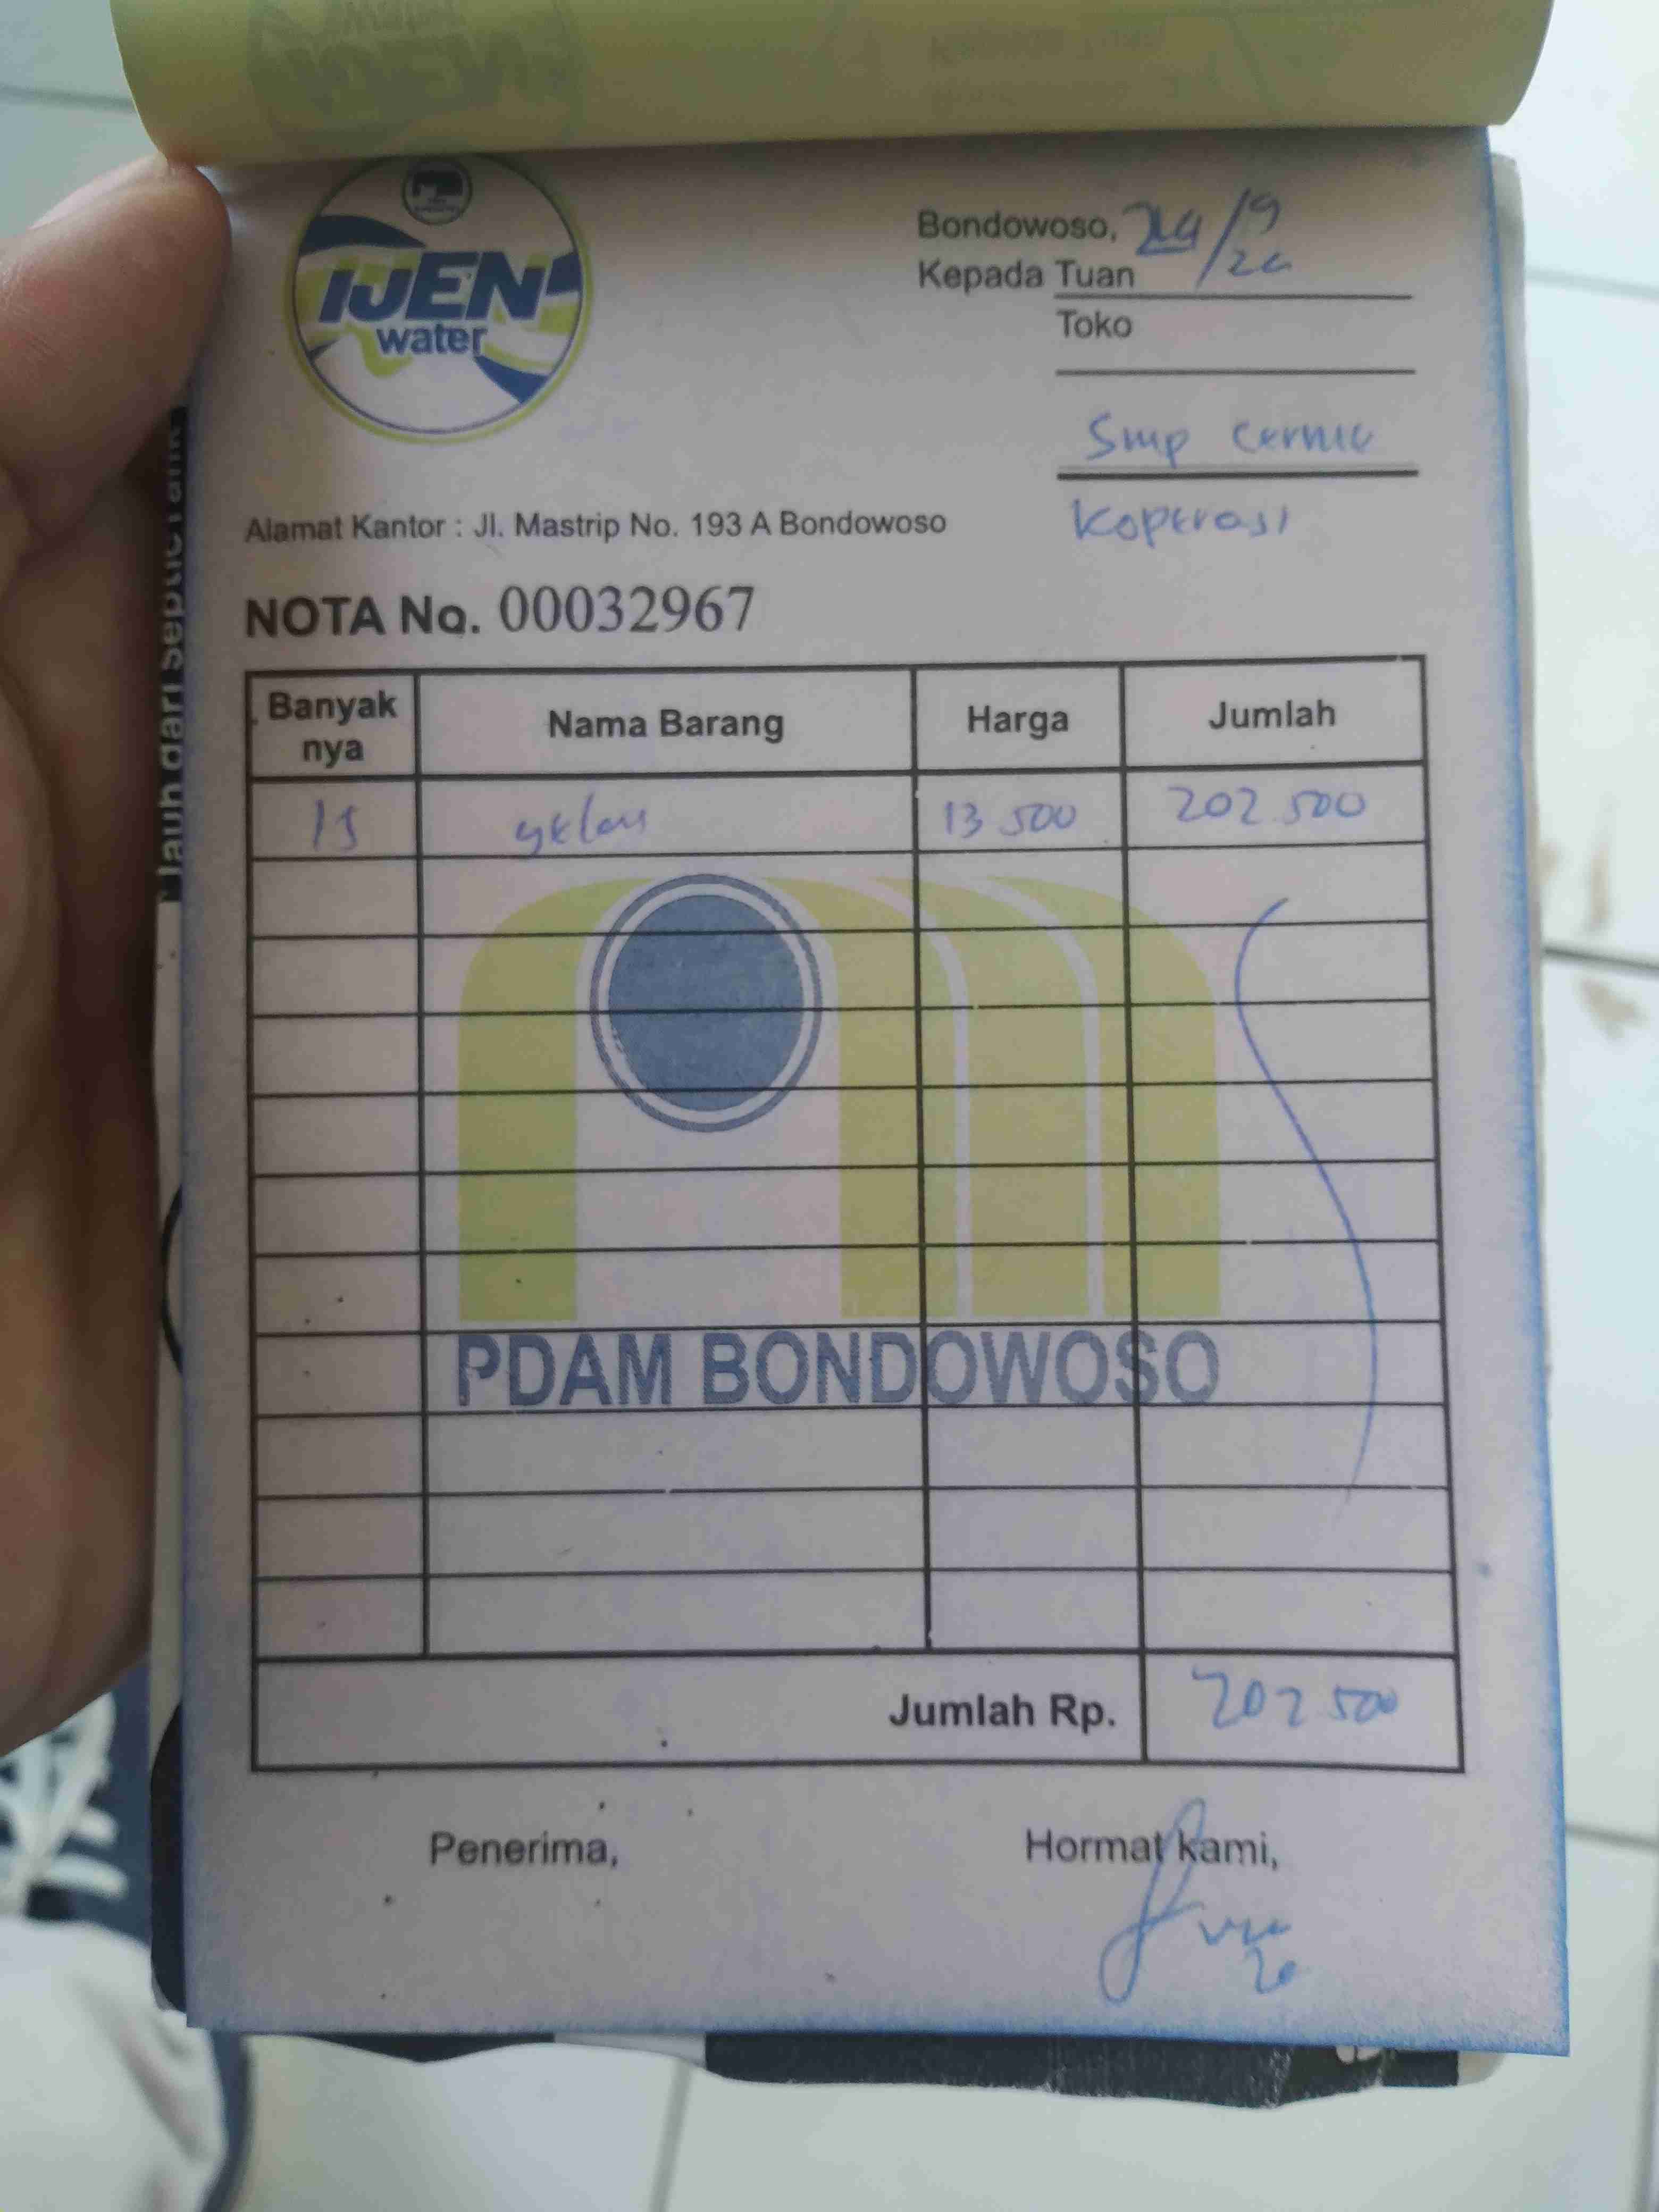 IJEN
water
Bondowoso, 24/9
Kepada Tuan
Toko
Smp cermE
Koperasi
Alamat Kantor : Jl. Mastrip No. 193 A Bondowoso
NOTA No. 00032967
Banyak
nya
Nama Barang
Harga
Jumlah
15 13 500 202.500
PDAM BONDOWOSO
Jumlah Rp. 202 500
Penerima,
Hormat kami,